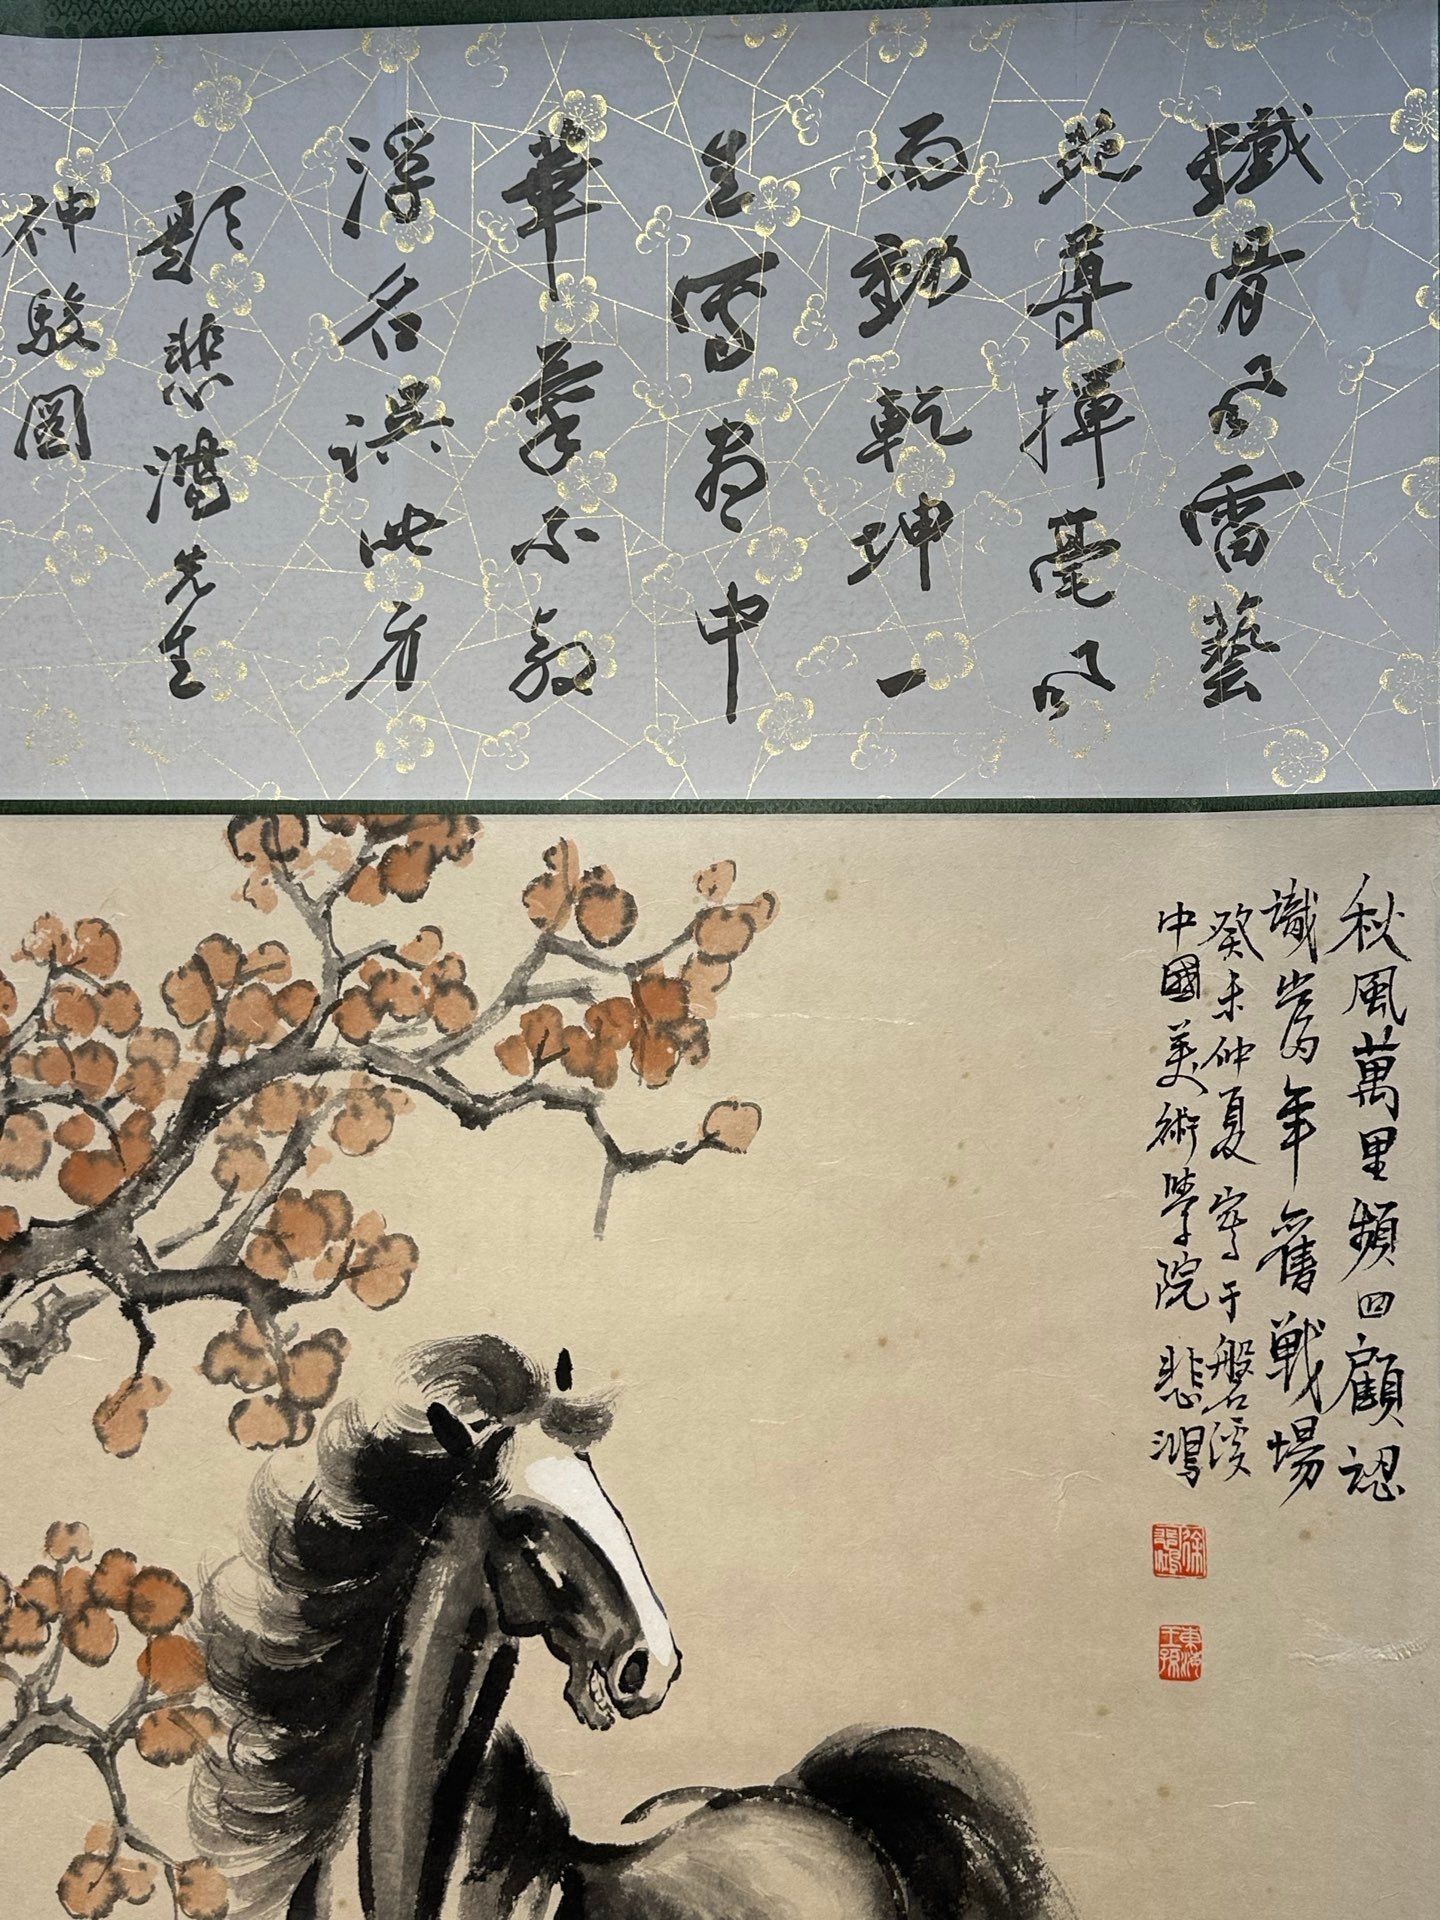 鐵骨風雷藝
苑尊揮毫風
雨動乾坤一
生寫尽中
華夢不教
浮名誤此身
題悲鴻先生
神駿圖
秋風萬里頻回顧認
識當年舊戰場
癸未仲夏寫于磐溪
中國美術學院 悲鴻
徐悲鴻
東海王孫